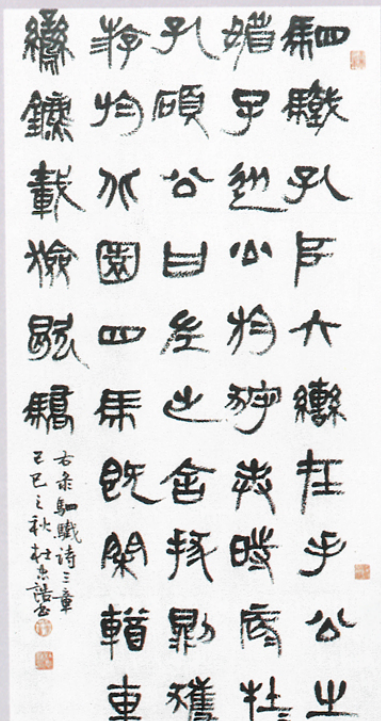 駟驖孔阜六轡在手公之
媚子從公於狩奉時辰〻牡〻
孔碩公曰左之舍拔則獲
游於北園四馬既閑輶車
鸞鑣載獫歇驕
右彔駟驖诗三章
己巳之秋杜忠誥書